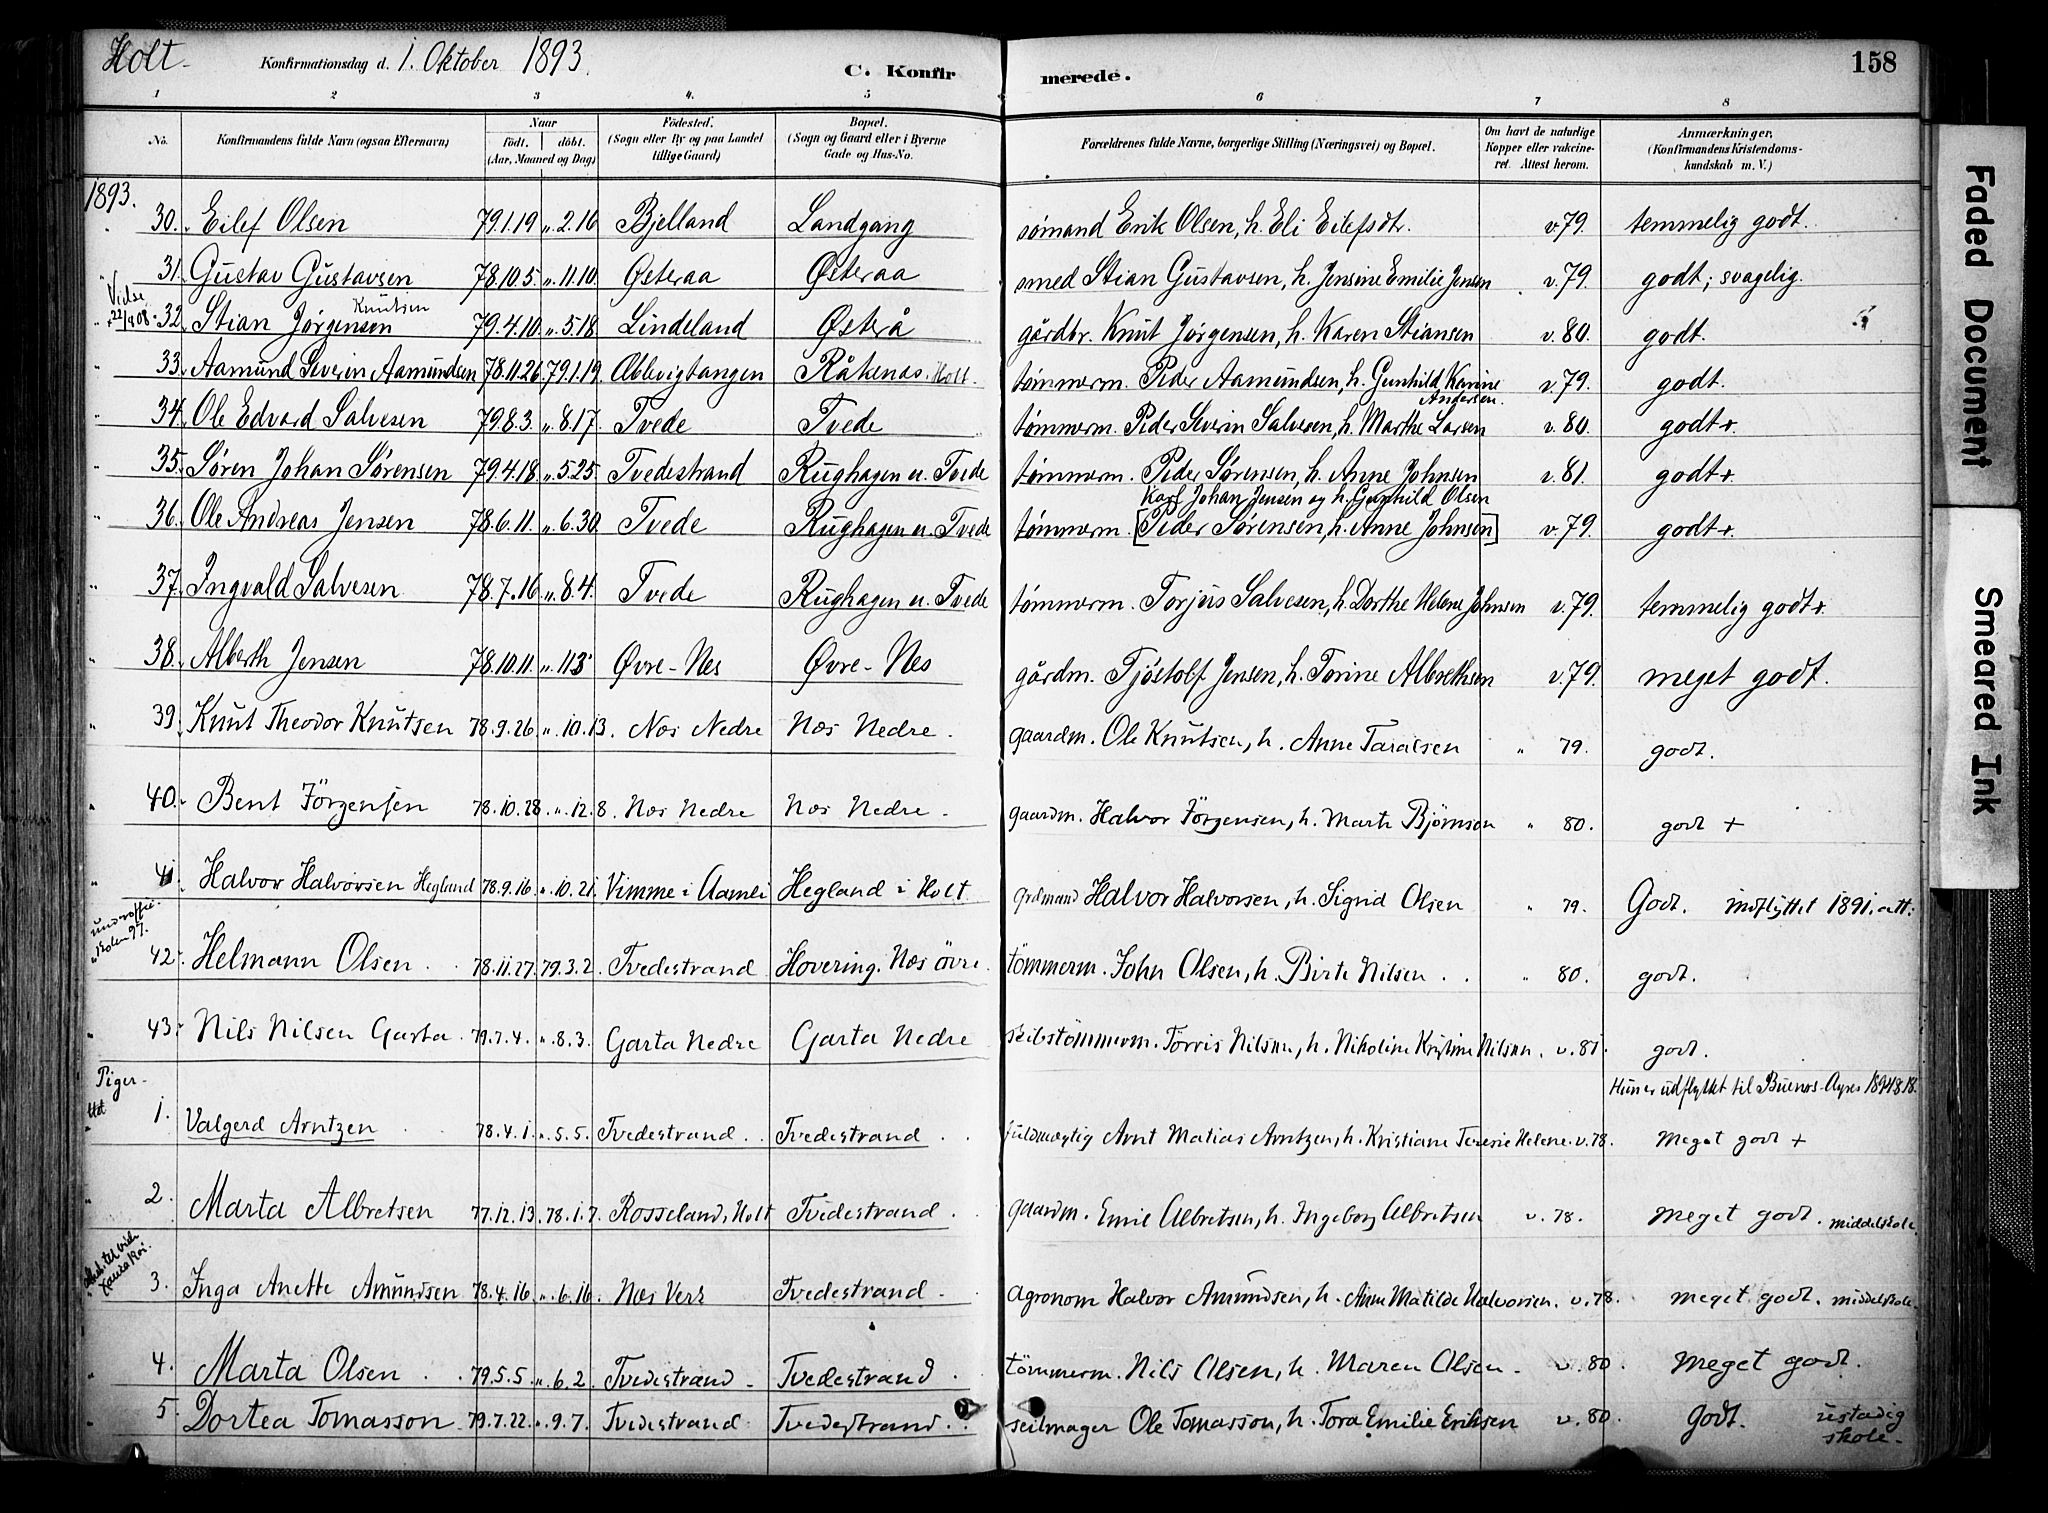 Holt. Konfirmationsdag d. 1. Oktober 1893. C. Konfirmerede. 158
1 2 3 4. 5 6 7 8
No. Konfirmandens fulde Navn (ogsaa Efternavn) Naar födt. döbt. (Aar, Maaned og Dag) Födested. (Sogn eller By og paa Landet tillige Gaard) Bopæl. (Sogn og Gaard eller i Byerne Gade og Hus-No. Forældrenes fulde Navne, borgerlige Stilling (Næringsvei) og Bopæl. Om havt de naturlige Kopper eller vakcineret. Attest herom. Anmærkninger, (Konfirmandens Kristendomskundskab m. V.)
1893.
30. Eilef Olsen 79.1.19 „ 2.16 Bjelland Landgang sømand Erik Olsen, h. Eli Eilefsdtr. v. 79. temmelig godt.
31. Gustav Gustavsen 78.10.5. „ 11.10. Østeraa Østeraa smed Stian Gustavsen, h. Jensine Emilie Jensen v. 79. godt; svagelig.
Vielse 22/4 08. 32. Stian Jørgensen Knutsen 79.4.10. „ 5.18. Lindeland Østerå gårdbr. Knut Jørgensen, h. Karen Stiansen v. 80. godt.
33. Aamund Severin Aamundsen 78.11.26. 79.1.19. Råkenæs. Holt. tømmerm. Peder Aamundsen, h. Gunhild Karine Andersen. v. 79. godt.
34. Ole Edvard Salvesen 79.8.3. „ 8.17. Tvede Tvede tømmerm. Peder Severin Salvesen, h. Marthe Larsen v. 80. godt+.
35. Søren Johan Sørensen 79.4.18. „ 5.25. Tvedestrand Rughagen u. Tvede tømmerm. Peder Sørensen, h. Anne Johnsen v. 81. godt+
Karl Johan Jensen og h. Gunhild Olsen
36. Ole Andreas Jensen 78.6.11. „ 6.30. Tvede Rughagen u. Tvede tømmerm. [Peder Sørensen, h. Anne Johnsen] v. 79. godt+.
37. Ingvald Salvesen 78.7.16 „ 8.4. Tvede Rughagen u. Tvede tømmerm. Torjus Salvesen, h. Dorthe Helene Johnsen v. 79. temmelig godt+.
38. Alberth Jensen 78.10.11. „ 11.3 Øvre-Nes Øvre-Nes gårdm. Tjöstolf Jensen, h. Torine Albrethsen v. 79. meget godt.
39. Knut Theodor Knutsen 78.9.26. „ 10.13. Næs Nedre Næs Nedre. gaardm. Ole Knutsen, h. Anne Taralsen „ 79. godt.
40. Bent Jörgensen 78.10.28. „ 12.8. Næs Nedre Næs Nedre. gaardm. Halvor Jörgensen, h. Marte Bjørnson „ 80. godt +
41. Halvor Halvorsen Hegland 78.9.16. „ 10.21. Vimme i Aamli Hegland i Holt. grdmand Halvor Halvorsen, h. Sigrid Olsen „ 79. Godt. indflyttet 1891. att:
42. Helmann Olsen. 78.11.27. 79.3.2. Tvedestrand Hovering. Næs övre. tömmerm. John Olsen, h. Birte Nilsen. „ 80. godt.
43. Nils Nilsen Garta. 79.7.4. „ 8.3. Garta Nedre Garta Nedre skibstömmerm. Torris Nilsen, h. Nikoline Kristine Nilsen. v. 81. godt.
Piger.
Hun er udflyttet til Buenos-Ayres 1894.8.18.
1. Valgerd Arntzen 78.4.1. „ 5.5. Tvedestrand. Tvedestrand. fuldmægtig Arnt Matias Arntzen, h. Kristiane Teresie Helene. v. 78. Meget godt +
2. Marta Albretsen 77.12.13. 78.1.7. Rosseland, Holt Tvedestrand. gaardm. Emil Albretsen, h. Ingeborg Albretsen v. 78. Meget godt. middelskole.
3. Inga Anette Amundsen 78.4.16. „ 6.16. Næs Verk Tvedestrand. agronom Halvor Amundsen, h. Anne Matilde Halvorsen. v. 78. meget godt. middelskole.
4. Marta Olsen. 79.5.5. „ 6.2. Tvedestrand. Tvedestrand. tömmerm. Nils Olsen, h. Maren Olsen. v. 80. Meget godt.
5. Dortea Tomasson. 79.7.22. „ 9.7. Tvedestrand. Tvedestrand. seilmager Ole Tomasson, h. Tora Emilie Eriksen v. 80. Godt. ustadig skole.
Faded Document
Smeared Ink